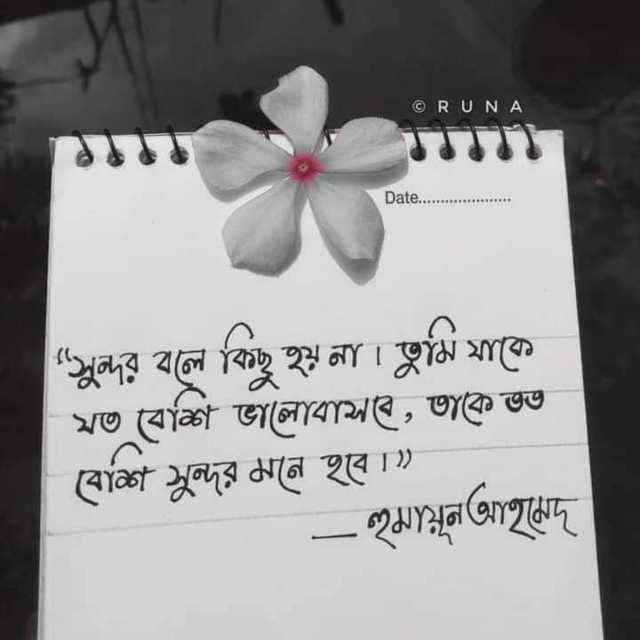 © RUNA
Date......................
“সুন্দর বলে কিছু হয় না । তুমি যাকে
যত বেশি ভালোবাসবে, তাকে তত
বেশি সুন্দর মনে হবে ।”
— হুমায়ূন আহমেদ